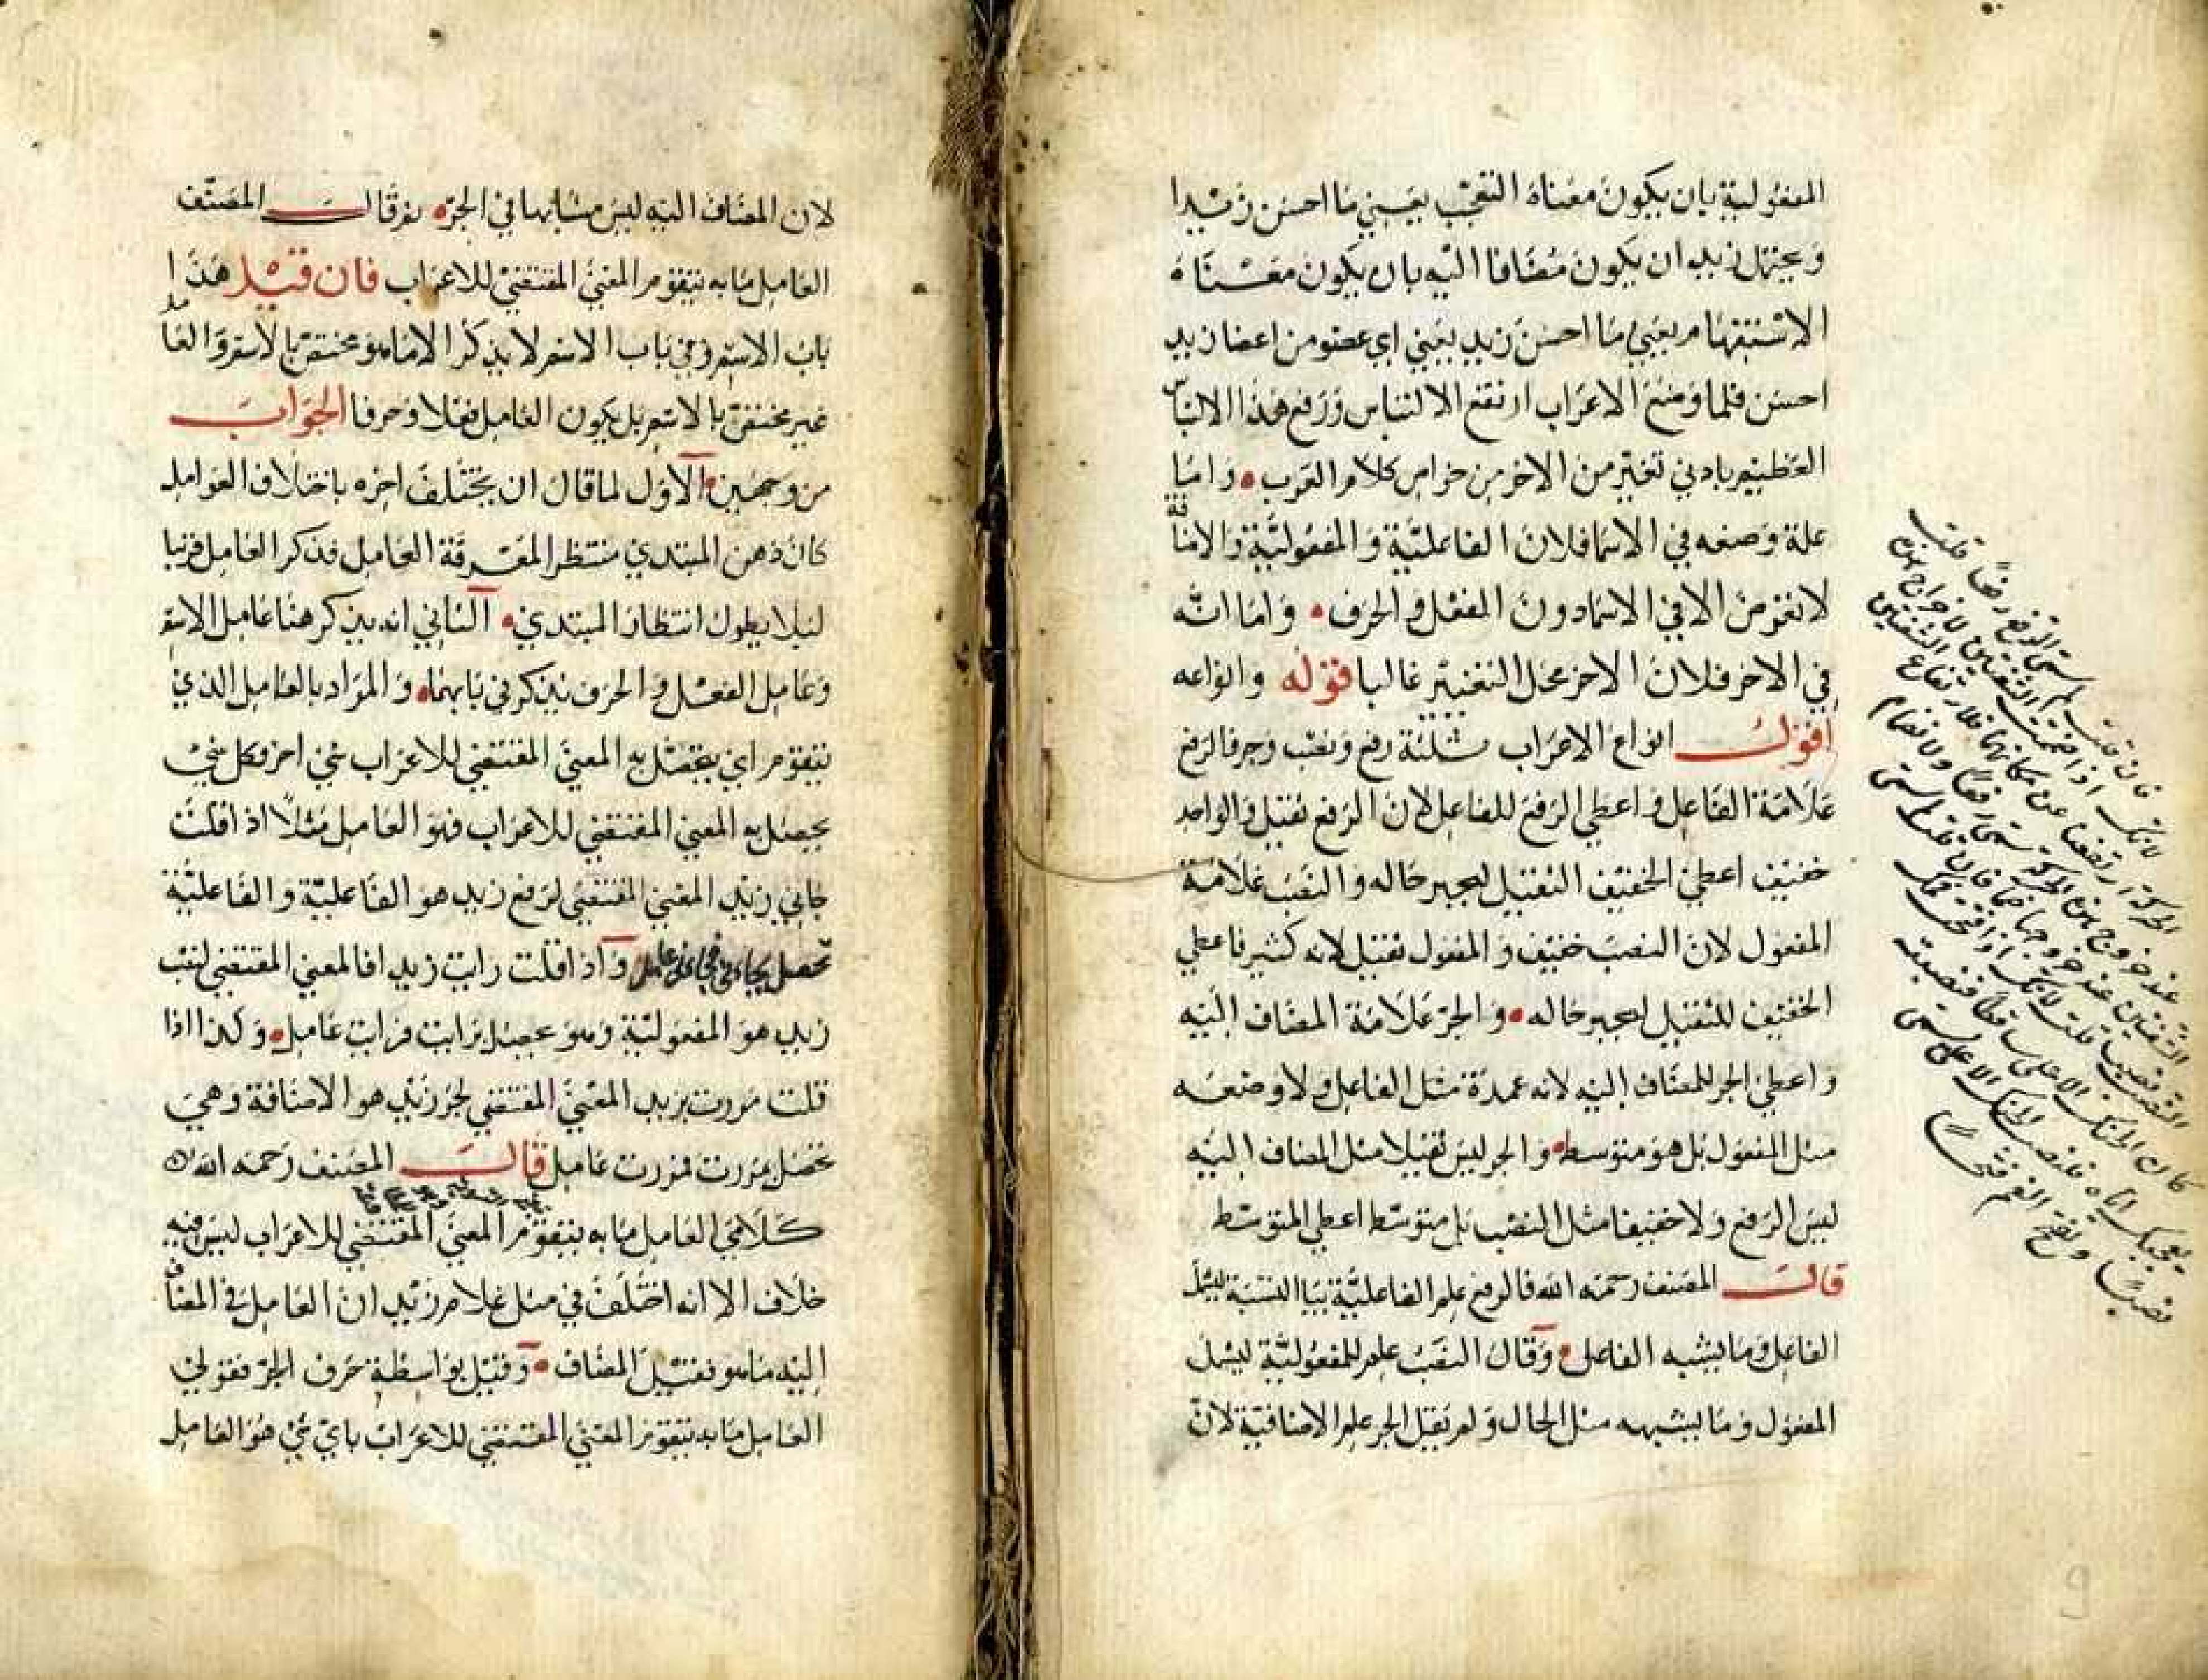 المفعولية بان يكون معناه التعجب يعني ما احسن زيدا
و يحتمل زيد ان يكون مضافا اليه بان يكون معناه
الاستفهام يعني ما احسن زيد يعني اي عضو من اعضا زيد
احسن فلما وضع الاعراب ارتفع الالتباس ورفع هذا الالتباس
العظيم بادني تغير من الاخر من خواص كلام العرب واما
علة وضعه في الاسما فلان الفاعلية والمفعولية والاضافة
لا تعرض الا في الاسما دون الفعل والحرف واما انه
في الاخر فلان الاخر محل التغيير غالبا قوله وانواعه
اقول انواع الاعراب ثلثة رفع ونصب وجر فالرفع
علامة الفاعل واعطي الرفع للفاعل لان الرفع ثقيل والواحد
خفيف اعطي الخفيف الثقيل ليجبر حاله والنصب علامة
المفعول لان النصب خفيف والمفعول ثقيل لانه كثير فاعطي
الخفيف للثقيل ليجبر حاله والجر علامة المضاف اليه
واعطي الجر للمضاف اليه لانه عمدة مثل الفاعل ولا وضعه
مثل المفعول بل هو متوسط والجر ليس ثقيلا مثل المضاف اليه
ليس الرفع ولا خفيفا مثل النصب بل متوسط اعطي المتوسط
قال المصنف رحمه الله فالرفع علم الفاعلية بيا النسبة ليشمل
الفاعل وما يشبه الفاعل وقال النصب علم للمفعولية ليشمل
المفعول وما يشبهه مثل الحال ولم يقل الجر علم الاضافية لان
فان قلت لم سمي الرفع رفعا قلت
لانك اذا ضممت الشفتين لاخراج هذه
الحركة ارتفعتا عن مكانهما فلارتفاع الشفتين
عند خروج هذه الحركة سمي رفعا ولانضمام
الشفتين عند خروجها ضما فان قلت لم سمي
النصب نصبا قلت لانك اذا فتحت فمك
لان المضاف اليه ليس مشابها في الجر ثم قال المصنف
العامل ما به يتقوم المعني المقتضي للاعراب فان قيل هذا
باب الاسم وفي باب الاسم لا يذكر الا ما هو مختص بالاسم والعامل
غير مختص بالاسم بل يكون العامل فعلا وحرفا الجواب
من وجهين الاول لما قال ان يختلف اخره باختلاف العوامل
كان ذهن المبتدي منتظرا لمعرفة العامل فذكر العامل قريبا
ليلا يطول انتظار المبتدي الثاني انه يذكر هنا عامل الاسم
وعامل الفعل والحرف يذكر في بابهما والمراد بالعامل الذي
يتقوم اي يحصل به المعني المقتضي للاعراب شي اخر وكل شي
يحصل به المعني المقتضي للاعراب فهو العامل مثلا اذا قلت
جاني زيد المعني المقتضي لرفع زيد هو الفاعلية والفاعلية
تحصل بجاني فجاني عامل واذا قلت رايت زيدا فالمعني المقتضي لنصب
زيد هو المفعولية وهو يحصل برايت فرايت عامل وكذا اذا
قلت مررت بزيد المعني المقتضي لجر زيد هو الاضافة وهي
تحصل بمررت فمررت عامل قال المصنف رحمه الله
كلامي العامل ما به يتقوم المعني المقتضي للاعراب ليس فيه
خلاف الا انه اختلف في مثل غلام زيد ان العامل في المضاف
اليه ما هو فقيل المضاف وقيل بواسطة حرف الجر فقولي
العامل ما به يتقوم المعني المقتضي للاعراب باي شي هو العامل